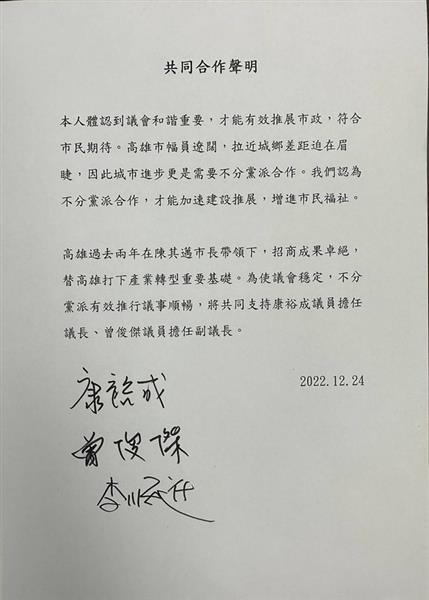 共同合作聲明
本人體認到議會和諧重要，才能有效推展市政，符合
市民期待。高雄市幅員遼闊，拉近城鄉差距迫在眉
睫，因此城市進步更是需要不分黨派合作。我們認為
不分黨派合作，才能加速建設推展，增進市民福祉。
高雄過去兩年在陳其邁市長帶領下，招商成果卓絕，
替高雄打下產業轉型重要基礎。為使議會穩定，不分
黨派有效推行議事順暢，將共同支持康裕成議員擔任
議長、曾俊傑議員擔任副議長。
2022.12.24
康裕成
曾俊傑
李順進